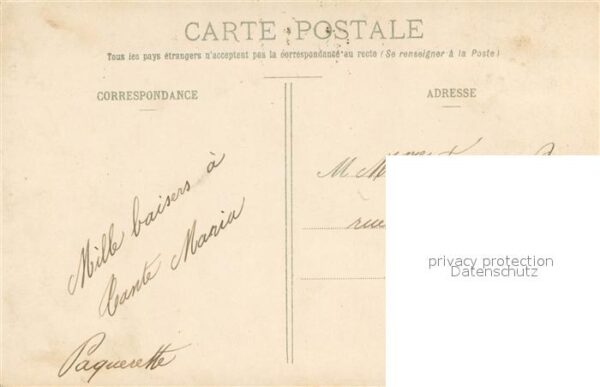 CARTE POSTALE
Tous les pays étrangers n'acceptent pas la correspondance au recto (Se renseigner à la Poste)
CORRESPONDANCE
ADRESSE
Mille baisers à
tante Maria
Paquerette
M M
rue
privacy protection
Datenschutz